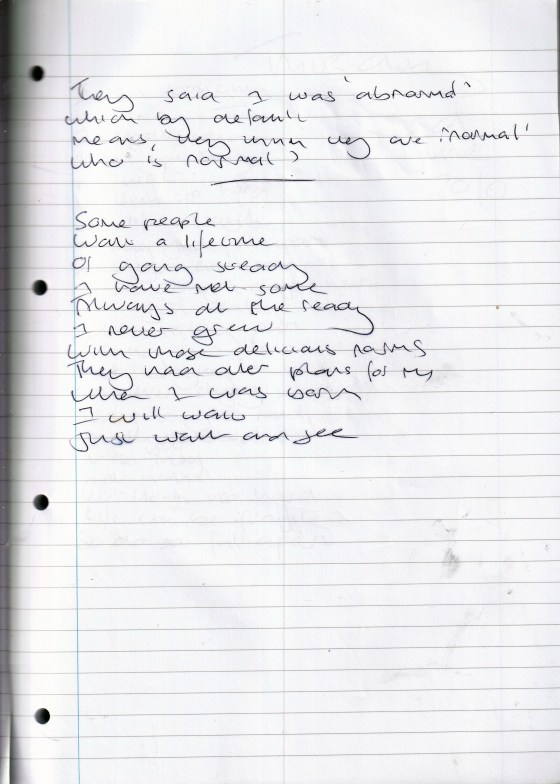 They said I was 'abnormal'
which by default
means, they think they are 'normal'
who is normal?
Some people
want a lifetime
Of going steady
I have met some
Always at the ready
I never grew
with those delicious
They had other plans for me
when I was born
I will
Just wait and see